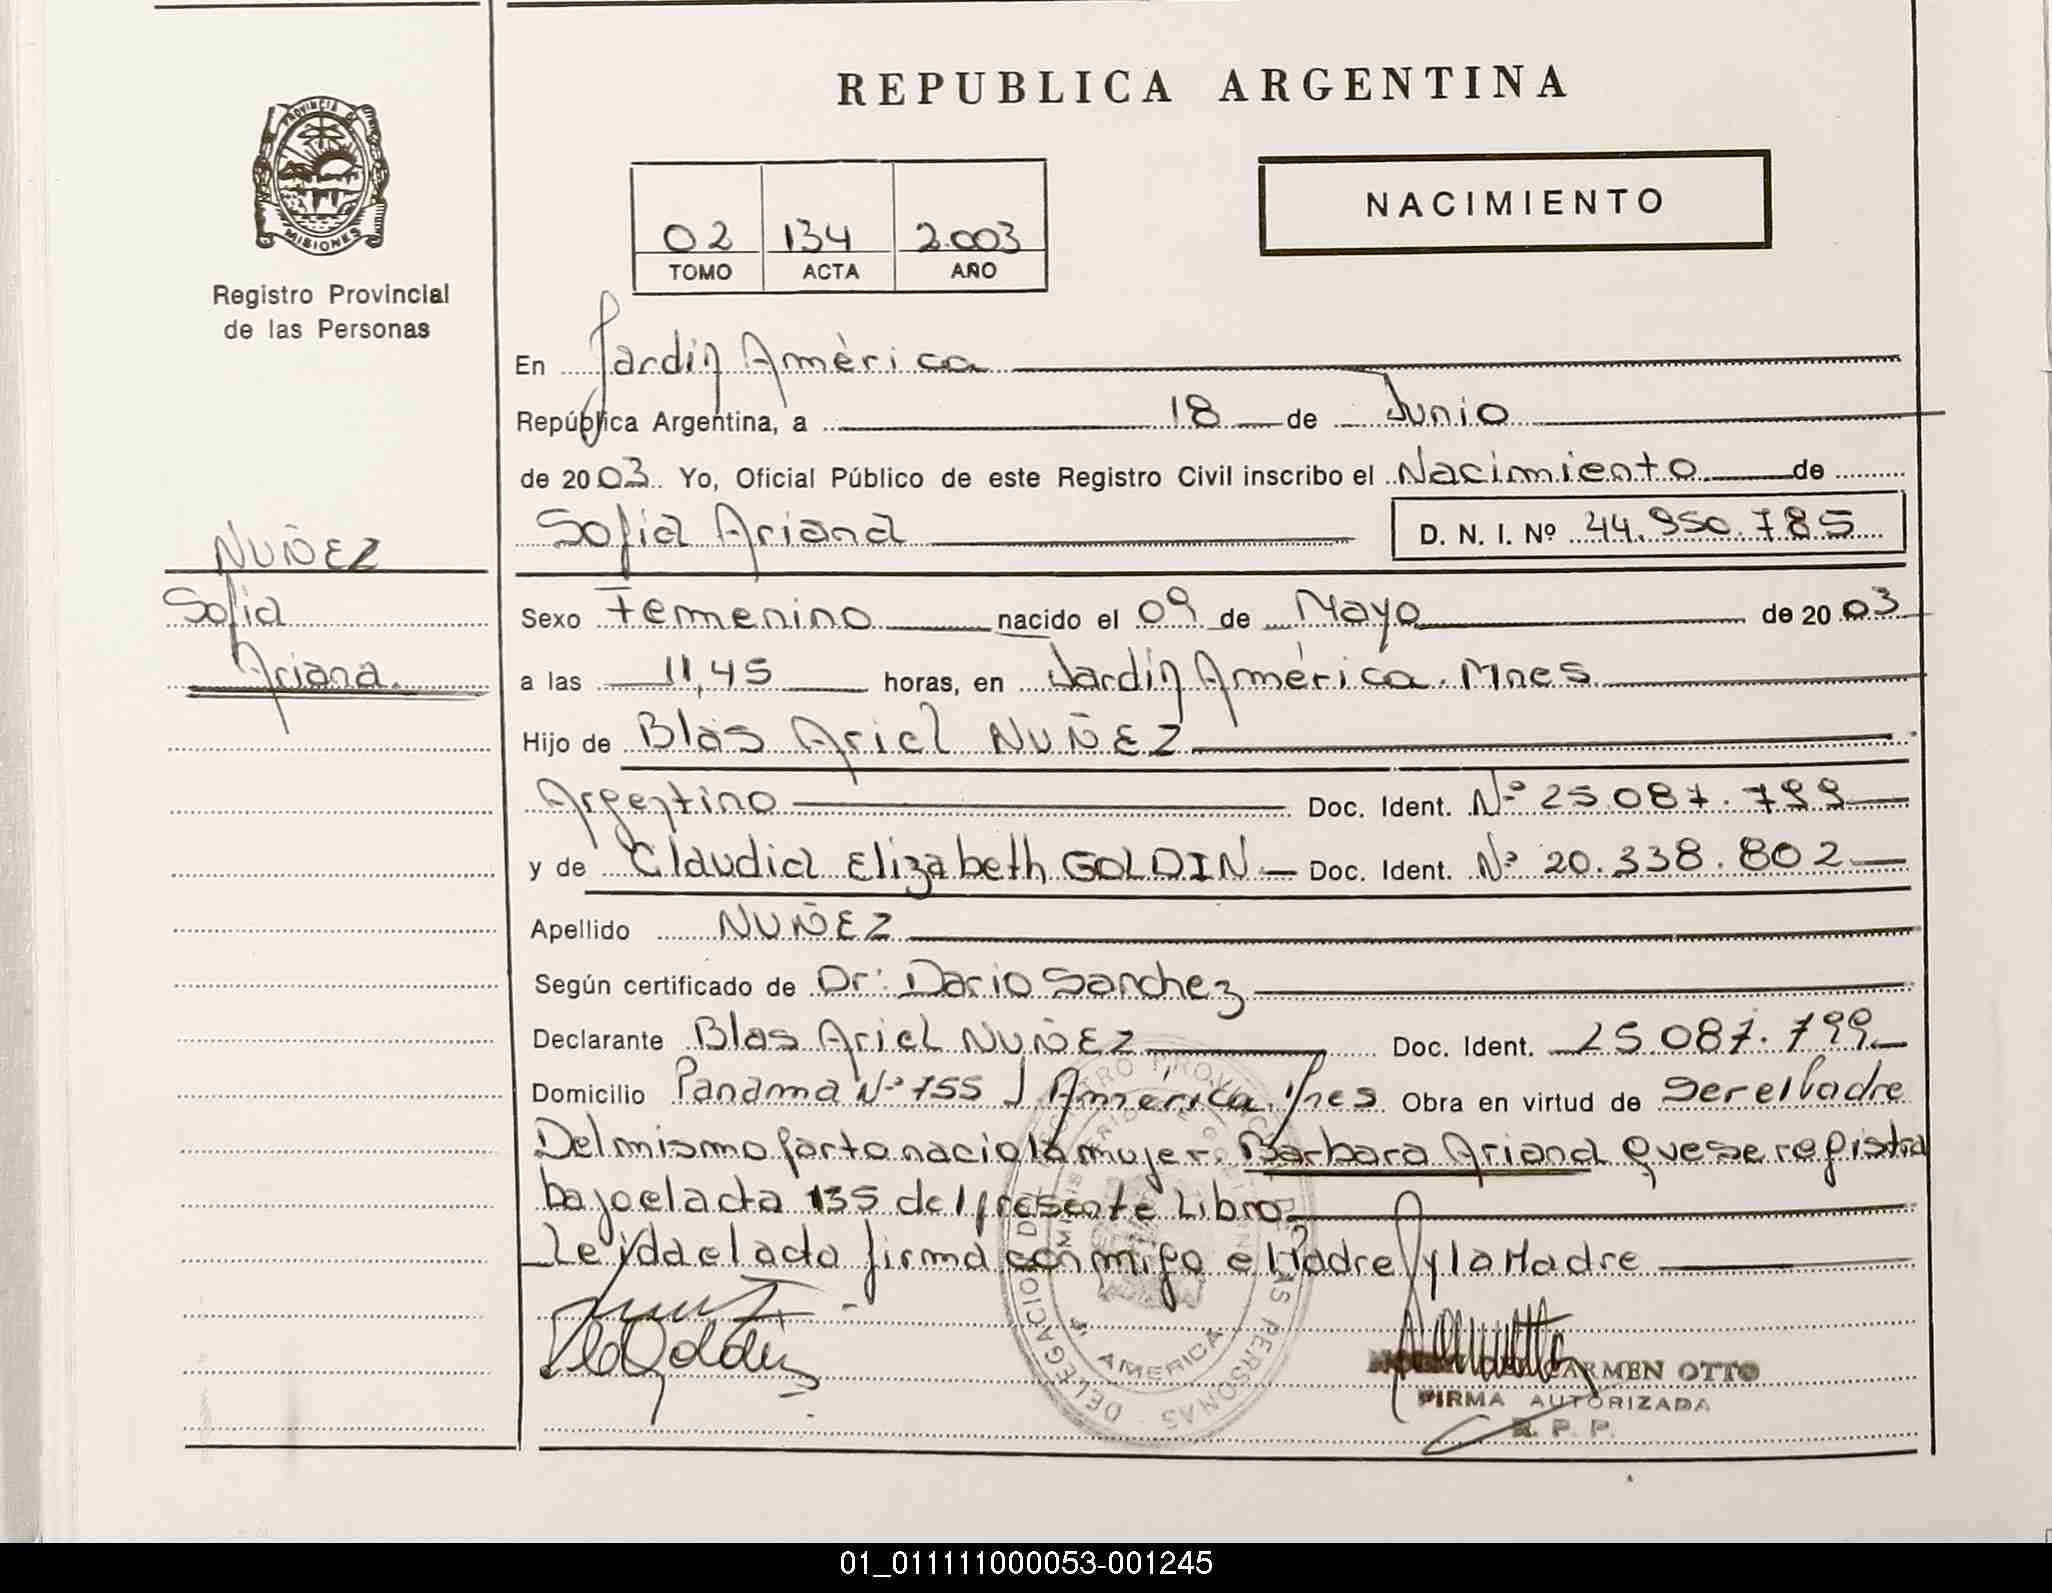 REPUBLICA ARGENTINA
PROVINCIA DE
MISIONES
Registro Provincial
de las Personas
NACIMIENTO
02 134 2.003
TOMO ACTA AÑO
En Jardín América
República Argentina, a 18 de Junio
de 2003 Yo, Oficial Público de este Registro Civil inscribo el Nacimiento de
Sofia Ariana D. N. I. Nº 44.950.785
NUÑEZ
Sofia
Ariana.
Sexo Femenino nacido el 09 de Mayo de 2003
a las 11,45 horas, en Jardín América. Mnes
Hijo de Blas Ariel NUÑEZ
Argentino Doc. Ident. Nº 25.087.799
y de Claudia Elizabeth GOLDIN Doc. Ident. Nº 20.338.802
Apellido NUÑEZ
Según certificado de Dr: Dario Sanchez
Declarante Blas Ariel NUÑEZ Doc. Ident. 25.087.799
Domicilio Panama Nº 755 J. América. Mnes Obra en virtud de ser el Padre
Del mismo parto nacio la mujer. Barbara Ariana que se registra
bajo el acta 135 del presente Libro
Leida el acta firma conmigo el Padre y la Madre
DELEGACION
PERSONAS
AMERICA
CARMEN OTTO
FIRMA AUTORIZADA
R. P. P.
01_011111000053-001245